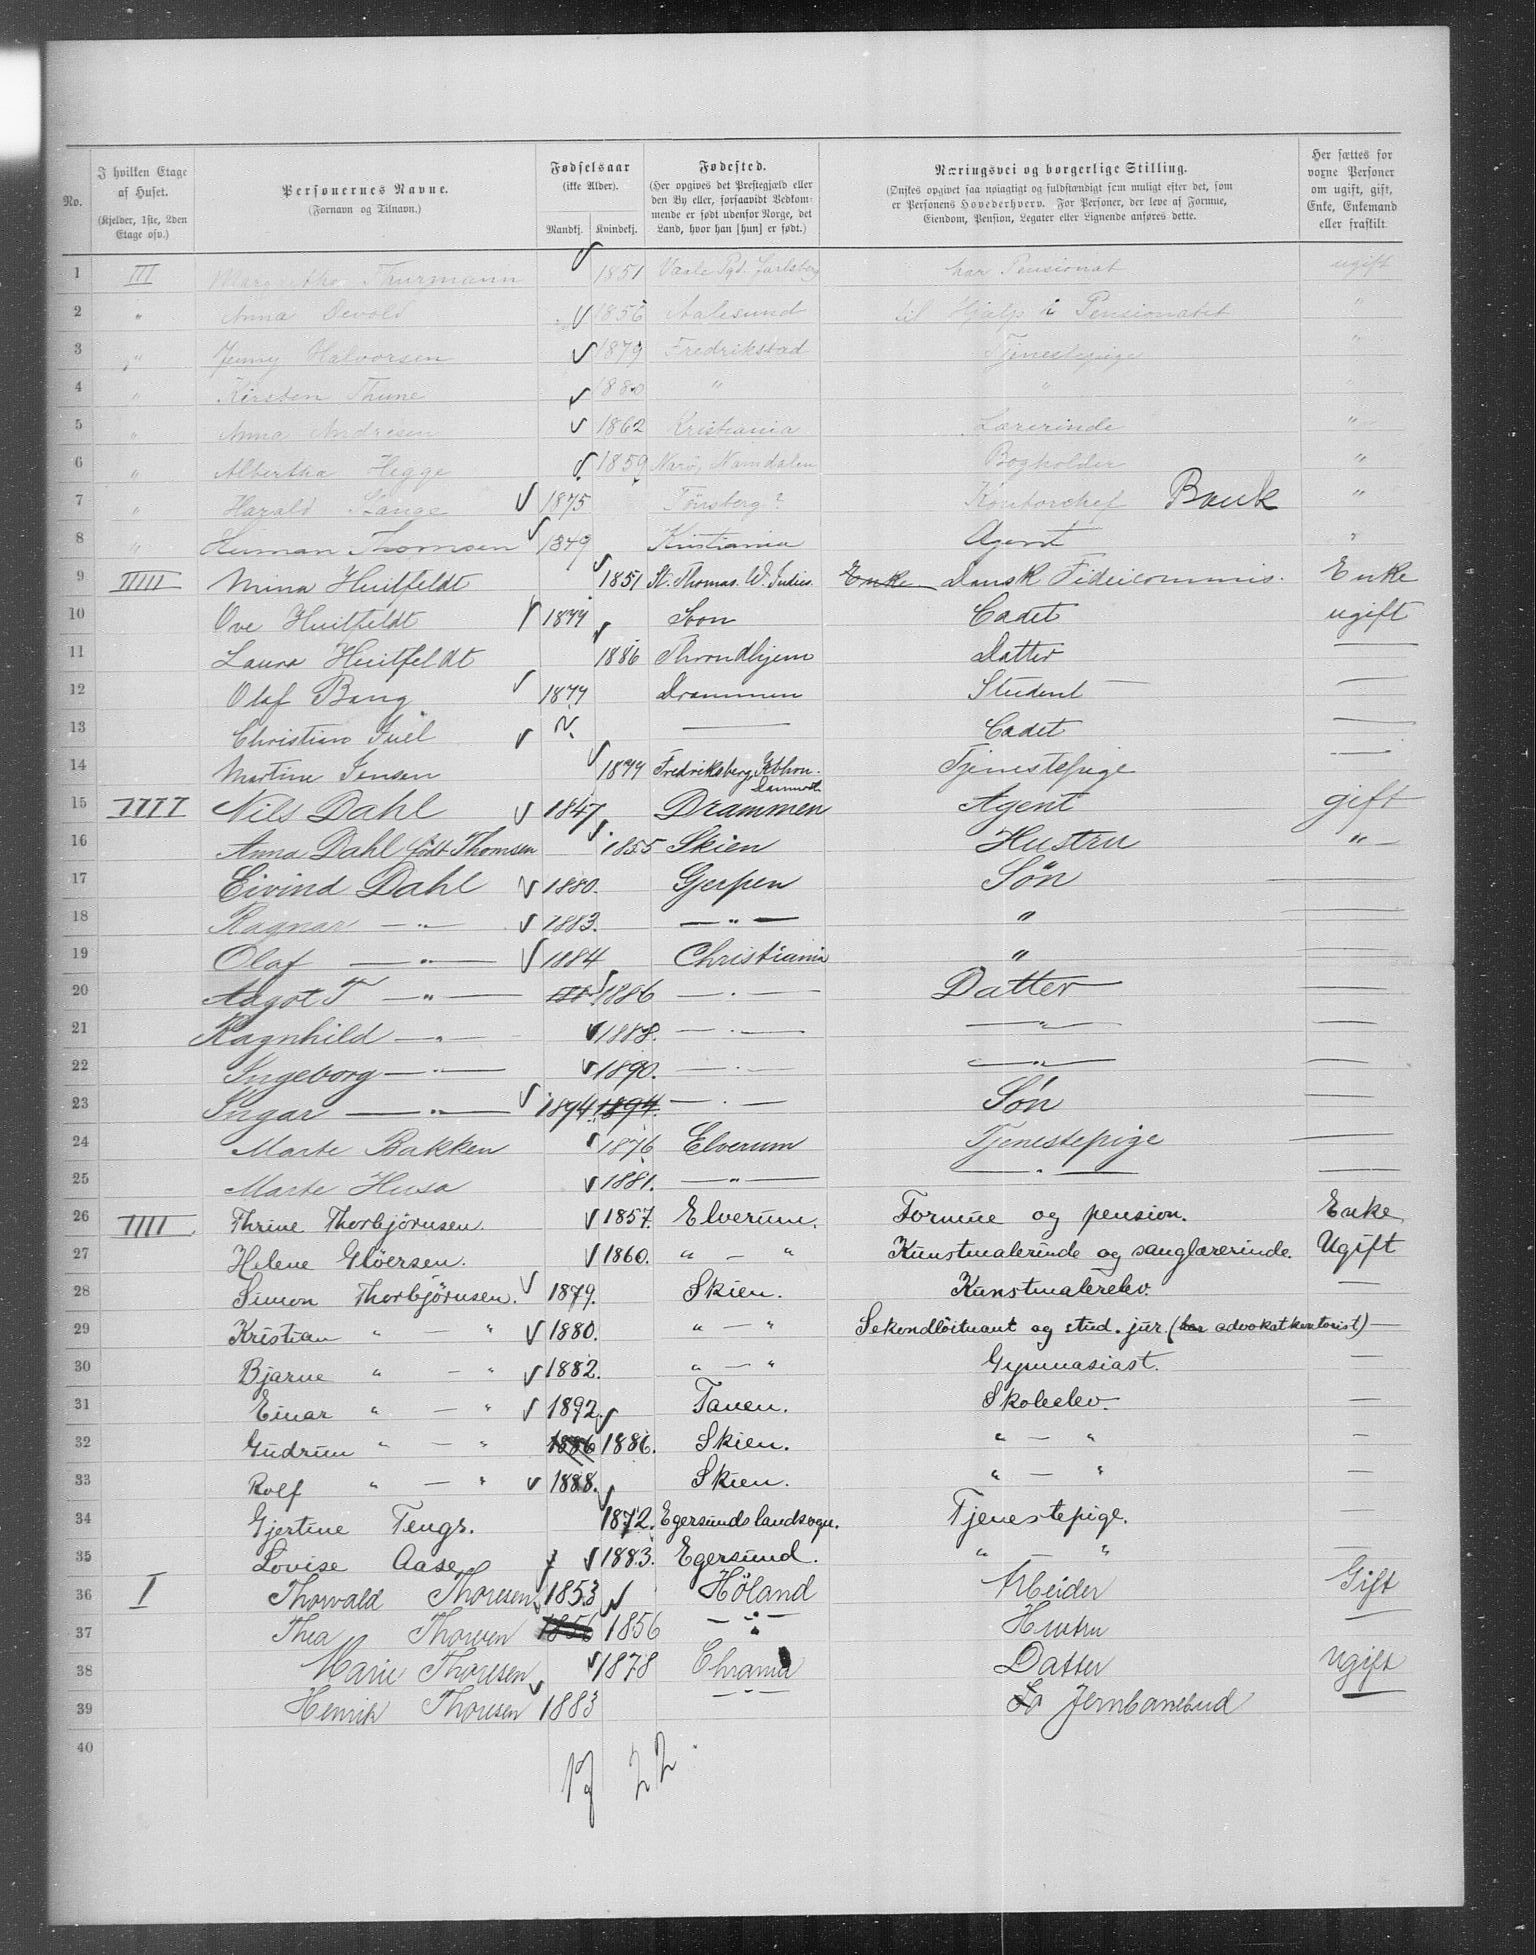 No.
I hvilken Etage af Huset.
(Kjelder, 1ste, 2den Etage osv.)
Personernes Navne.
(Fornavn og Tilnavn.)
Fødselsaar
(ikke Alder).
Mandkj. Kvindekj.
Fødested.
(Her opgives det Prestegjæld eller den By eller, forsaavidt Vedkommende er født udenfor Norge, det Land, hvor han [hun] er født.)
Næringsvei og borgerlige Stilling.
(Ønskes opgivet saa nøiagtigt og fuldstændigt som muligt efter det, som er Personens Hovederhverv. For Personer, der leve af Formue, Eiendom, Pension, Legater eller Lignende anføres dette.
Her sættes for voxne Personer om ugift, gift, Enke, Enkemand eller fraskilt.
1 III Margrethe Thurmann 1851 Vaale Pgd. Jarlsberg har Pensionat ugift
2 " Anna Devold 1856 Aalesund til Hjælp i Pensionatet "
3 " Jenny Halvorsen 1879 Fredrikstad Tjenestepige "
4 " Kirsten Thune 1880 " " "
5 " Anna Andresen 1862 Kristiania Lærerinde "
6 " Albertha Hegge 1859 Narö, Namdalen Bogholder "
7 " Harald Lange 1875 Tönsberg? Kontorchef Bank "
8 " Herman Thomsen 1849 Kristiania Agent "
9 IIIII Mina Huitfeldt 1851 St. Thomas. W. Indies. Enke Dansk Fideicommis. Enke
10 Ove Huitfeldt 1877 Son Cadet ugift
11 Laura Huitfeldt 1886 Throndhjem Datter —
12 Olaf Bang 1877 Drammen Student —
13 Christian Juel " — Cadet —
14 Martine Jensen 1877 Fredriksberg, Kbhvn. Danmark Tjenestepige —
15 IIII Nils Dahl 1847 Drammen Agent gift
16 Anna Dahl født Thomsen 1855 Skien Hustru "
17 Eivind Dahl 1880. Gjerpen Søn —
18 Ragnar — " — 1883. — " — " —
19 Olaf — " — 1884 Christiania " —
20 Aagot T — " — 1886 — " — Datter —
21 Ragnhild — " — 1888. — " — — " — —
22 Ingeborg — " — 1890. — " — — " — —
23 Ingar — " — 1894. 1894. — " — Søn —
24 Marte Bakken 1876 Elverum Tjenestepige —
25 Marte Husa 1881. — " — — " — —
26 IIII Thrine Thorbjörnsen. 1857. Elverum. Formue og pension. Enke
27 Helene Glöersen. 1860. " — " Kunstmalerinde og sanglærerinde. Ugift
28 Simon Thorbjörnsen. 1879. Skien. Kunstmalerelev. —
29 Kristian " — " 1880. " — " Sekondlöitnant og stud. jur. (har advokatkontorist) —
30 Bjarne " — " 1882. " — " Gymnasiast. —
31 Einar " — " 1892. Tanen. Skoleelev. —
32 Gudrun " — " 1886 1886. Skien. " — " —
33 Rolf " — " 1888. Skien. " — " —
34 Gjertine Tengs. 1872. Egersunds landsogn. Tjenestepige. —
35 Lovise Aase 1883. Egersund. " — " —
36 I Thorvald Thoresen 1853 Höland Arbeider Gift
37 Thea Thoresen 1856 1856 — " — Hustru —
38 Marie Thoresen 1878 Chrania Datter Ugift
39 Henrik Thoresen 1883 — " — Jernbanebud —
40
17 22